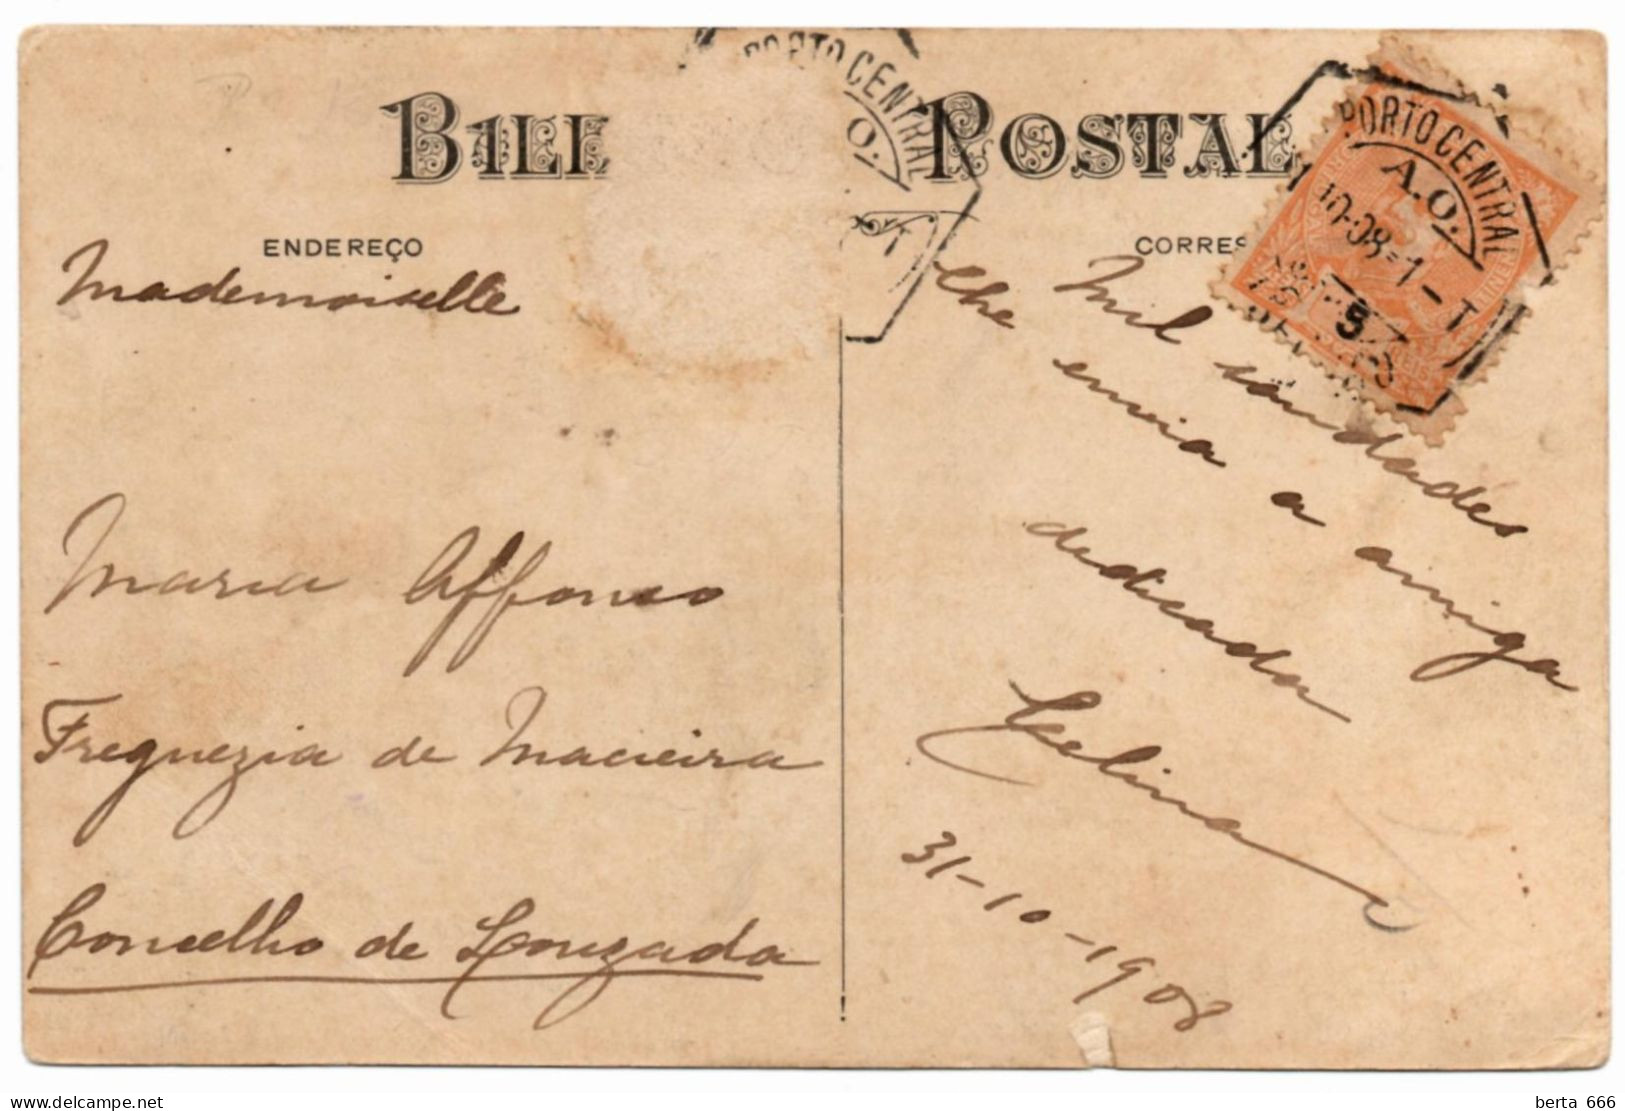 BILH POSTAL
PORTO CENTRAL
O.
T
ENDEREÇO
CORRES
PORTO CENTRAL
A.O.
10-08-1-T
5
Mademoiselle
Maria Affonso
Freguezia de Macieira
Concelho de Louzada
Mil saudades
lhe envia a amiga
dedicada
Celina
31-10-1908
berta 666